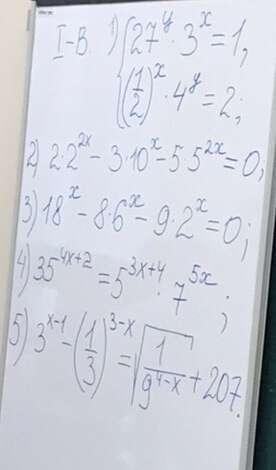 I-В. 1) { 27^y · 3^x = 1,
(1/2)^x · 4^y = 2;
2) 2·2^{2x} - 3·10^x - 5·5^{2x} = 0;
3) 18^x - 8·6^x - 9·2^x = 0;
4) 35^{4x+2} = 5^{3x+4} · 7^{5x};
5) 3^{x-1} - (1/3)^{3-x} = √(1/9^{4-x}) + 207.